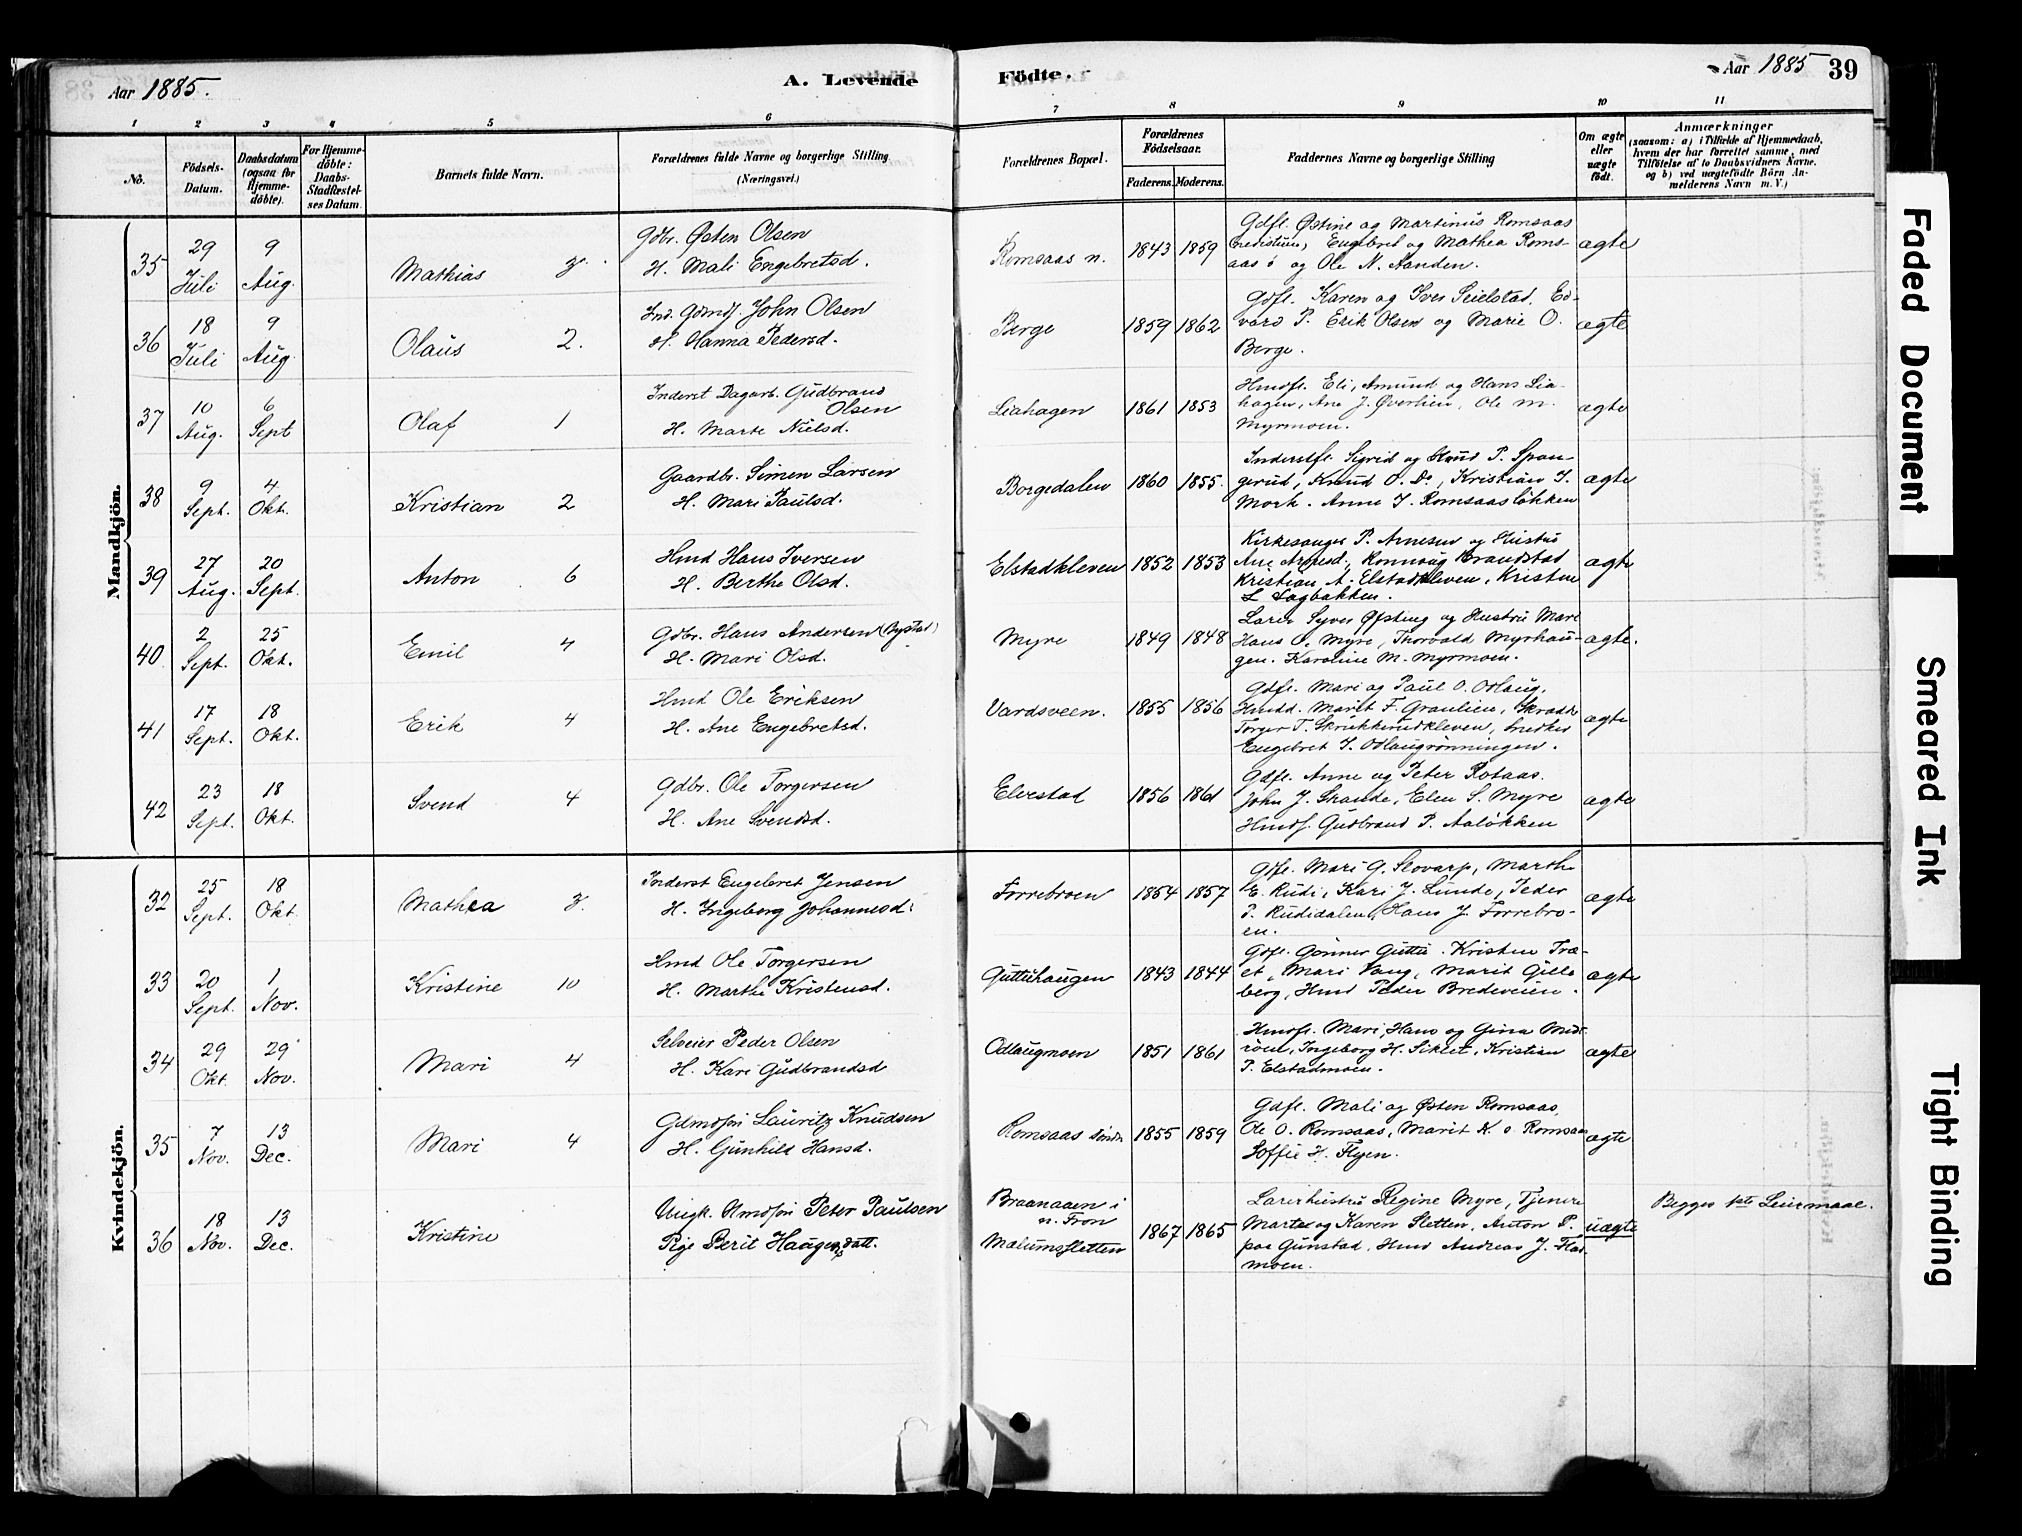 Aar 1885.
A. Levende
Födte.
Aar 1885
39
1 2 3 4 5 6 7 8 9 10 11
No.
Födsels-
Datum.
Daabsdatum
(ogsaa for
Hjemme-
döbte).
For Hjemme-
döbte:
Daabs-
Stadfæstel-
ses Datum.
Barnets fulde Navn.
Forældrenes fulde Navne og borgerlige Stilling
(Næringsvei.)
Forældrenes Bopæl.
Forældrenes
Födselsaar.
Faderens. Moderens.
Faddernes Navne og borgerlige Stilling
Om ægte
eller
uægte
födt.
Anmærkninger
(saasom: a) i Tilfælde af Hjemmedaab,
hvem der har forrettet samme, med
Tilföielse af to Daabsvidners Navne,
og b) ved uægtefödte Börn An-
melderens Navn m. V.)
Mandkjön.
35
29
Juli
9
Aug.
Mathias 3.
Gdbr. Østen Olsen
H. Mali Engebretsd.
Romsaas n.
1843 1859
Gdfl. Østine og Martinus Romsaas
nedistuen, Engebret og Mathea Roms-
aas ö og Ole N. Aanden.
ægte
36
18
Juli
9
Aug.
Olaus 2.
Ind. Gdmdf. John Olsen
H. Hanna Pedersd.
Berge
1859 1862
Gdfl. Karen og Iver Seielstad, Ed-
vard P. Erik Olsen og Marie O.
Berge.
ægte
37
10
Aug.
6
Sept
Olaf 1
Inderst Dagarb. Gudbrand
Olsen
H. Marte Nielsd.
Liahagen
1861 1853
Hmdfl. Eli, Amund og Hans Lia-
hagen, Ane J. Øverlien, Ole M.
Myrmoen.
ægte
38
9
Sept.
4
Okt.
Kristian 2
Gaardbr. Simen Larsen
H. Mari Paulsd.
Borgedalen
1860 1855.
Inderstfl. Sigrid og Knud P. Span-
gerud, Knud O. Do, Kristian J.
Mork. Anne J. Romsaasløkken
ægte
39
27
Aug.
20
Sept.
Anton 6
Hmd Hans Iversen
H. Berthe Olsd.
Elstadkleven
1852 1853
Kirkesanger P. Arnesen og Hustru
Ane Arnesd., Ronnaug Brandstad
Kristian A. Elstadkleven, Kristen
L Sagbakken.
ægte
40
2
Sept.
25
Okt.
Emil 4
Gdbr. Hans Andersen (Bystad)
H. Mari Olsd.
Myre
1849 1848
Lærer Syver Øfsteng og Hustru Mari
Hans O. Myre, Thorvald Myrhau-
gen. Karoline M. Myrmoen.
ægte.
41
17
Sept.
18
Okt.
Erik 4
Hmd Ole Eriksen
H. Ane Engebretsd.
Vardsveen.
1855 1856
Gdfl. Mari og Paul O. Odlaug,
Hmdd. Marit F. Graulien, Skrædd
Torger T. Skrukkerudkleven, Snedker
Engebret J. Odlaugrønningen.
ægte
42
23
Sept.
18
Okt.
Svend 4
Gdbr. Ole Torgersen
H. Ane Svendsd.
Elvestad
1856 1861
Gdfl. Anne og Peter Rotaas.
John J. Strande, Elen S. Myre
Hmdf. Gudbrand P. Aaløkken
ægte
Kvindekjön.
32
25
Sept.
18
Okt.
Mathea 3.
Inderst Engebret Jensen
H. Ingeborg Johannesd.
Forrebroen
1854 1857
Gdfl. Mari G. Slovarp, Marthe
E. Rudi, Kari J. Lunde, Peder
P. Rudidalen, Hans J. Forrebro-
en.
ægte
33
20
Sept.
1
Nov.
Kristine 10
Hmd Ole Torgersen
H. Marthe Kristensd.
Guttuhaugen
1843 1844
Gdfl. Gønner Guttu. Kristen Træ-
et, Mari Vang, Marit Gille-
berg, Hmd Peder Bredeveien.
ægte
34
29
Okt.
29
Nov.
Mari 4
Selveier Peder Olsen
H. Kari Gudbrandsd
Odlaugmoen
1851 1861
Hmdfl. Mari, Hans og Gina Mid-
röen, Ingeborg H. Siklet, Kristian
P. Elstadmoen.
ægte
35
7
Nov.
13
Dec.
Mari 4
Gdmdfori Lauritz Knudsen
H. Gunhild Hansd.
Romsaas söndr
1855 1859
Gdfl. Mali og Østen Romsaas,
Ole O. Romsaas, Marit K. o. Romsaas
Soffie H. Flyen.
ægte
36
18
Nov.
13
Dec.
Kristine
Ungk. Hmdfori Peter Paulsen
Pige Berit Haagensdatt.
Braanaaen i
n. Fron
Mælumsletten
1867 1865
Lærerhustru Regine Myre, Tjenere
Marte og Karen Sletten, Anton P.
paa Gunstad. Hmd Andreas J. Flad
moen.
uægte
Begges 1ste Leiermaal.
Faded Document
Smeared Ink
Tight Binding